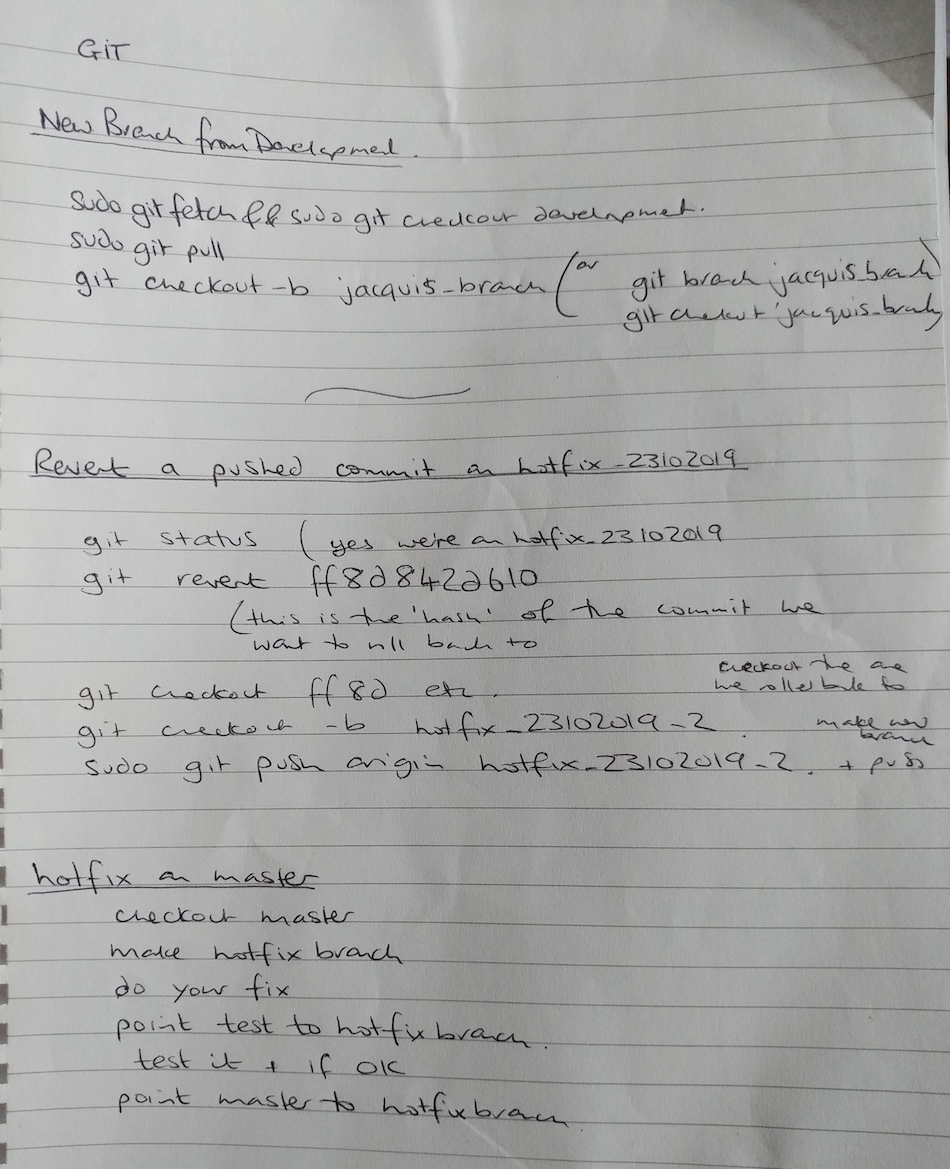 GIT
New Branch from Development.
sudo git fetch && sudo git checkout development.
sudo git pull
git checkout -b jacquis_branch (or git branch jacquis_branch
git checkout jacquis_branch)
Revert a pushed commit on hotfix_23102019
git status (yes we're on hotfix_23102019
git revert ff8d842d610
(this is the 'hash' of the commit we
want to roll back to
git checkout ff8d etc. checkout the one
we rolled back to
git checkout -b hotfix_23102019_2. make new
branch
sudo git push origin hotfix_23102019_2. + push
hotfix on master
checkout master
make hotfix branch
do your fix
point test to hotfix branch.
test it + if OK
point master to hotfix branch.